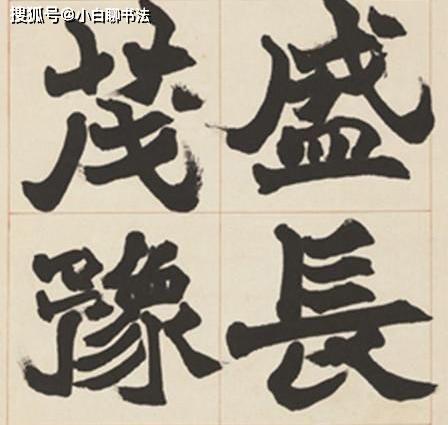 搜狐号@小白聊书法
盛長
茂豫